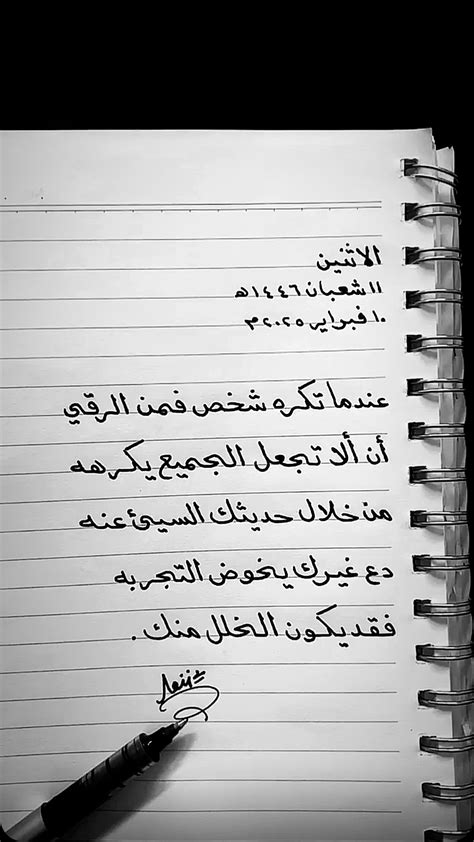 الاثنين
١١ شعبان ١٤٤٦هـ
١٠ فبراير ٢٠٢٥م
عندما تكره شخص فمن الرقي
أن ألا تجعل الجميع يكرهه
من خلال حديثك السيئ عنه
دع غيرك يخوض التجربه
فقد يكون الخلل منك .